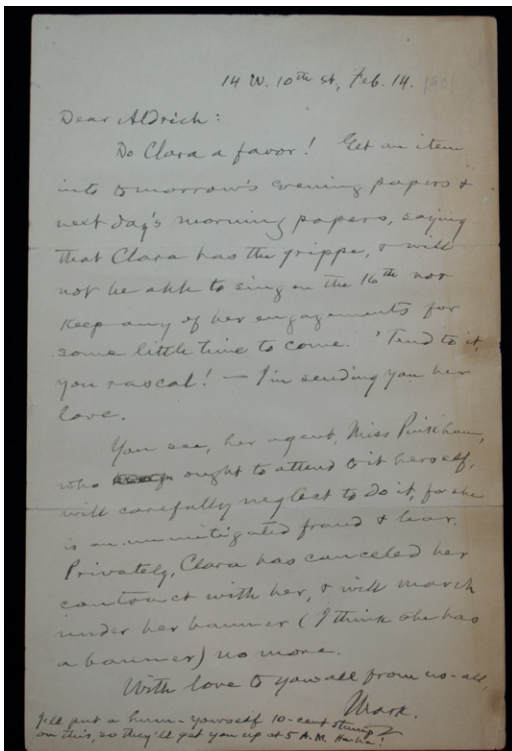 14 W. 10th st, Feb. 14. 1901
Dear Aldrich:
Do Clara a favor! Get an item
into tomorrow's evening papers &
next day's morning papers, saying
that Clara has the grippe, & will
not be able to sing on the 16th nor
keep any of her engagements for
some little time to come. 'Tend to it,
you rascal! — I'm sending you her
love.
You see, her agent, Miss Pinkham,
who ought to attend to it herself,
will carefully neglect to do it, for she
is an unmitigated fraud & liar.
Privately, Clara has canceled her
contract with her, & will march
under her banner (I think she has
a banner) no more.
With love to you-all from us-all,
Mark.
I'll put a hurry-yourself 10-cent stamp
on this, so they'll get you up at 5 A.M. Haha!